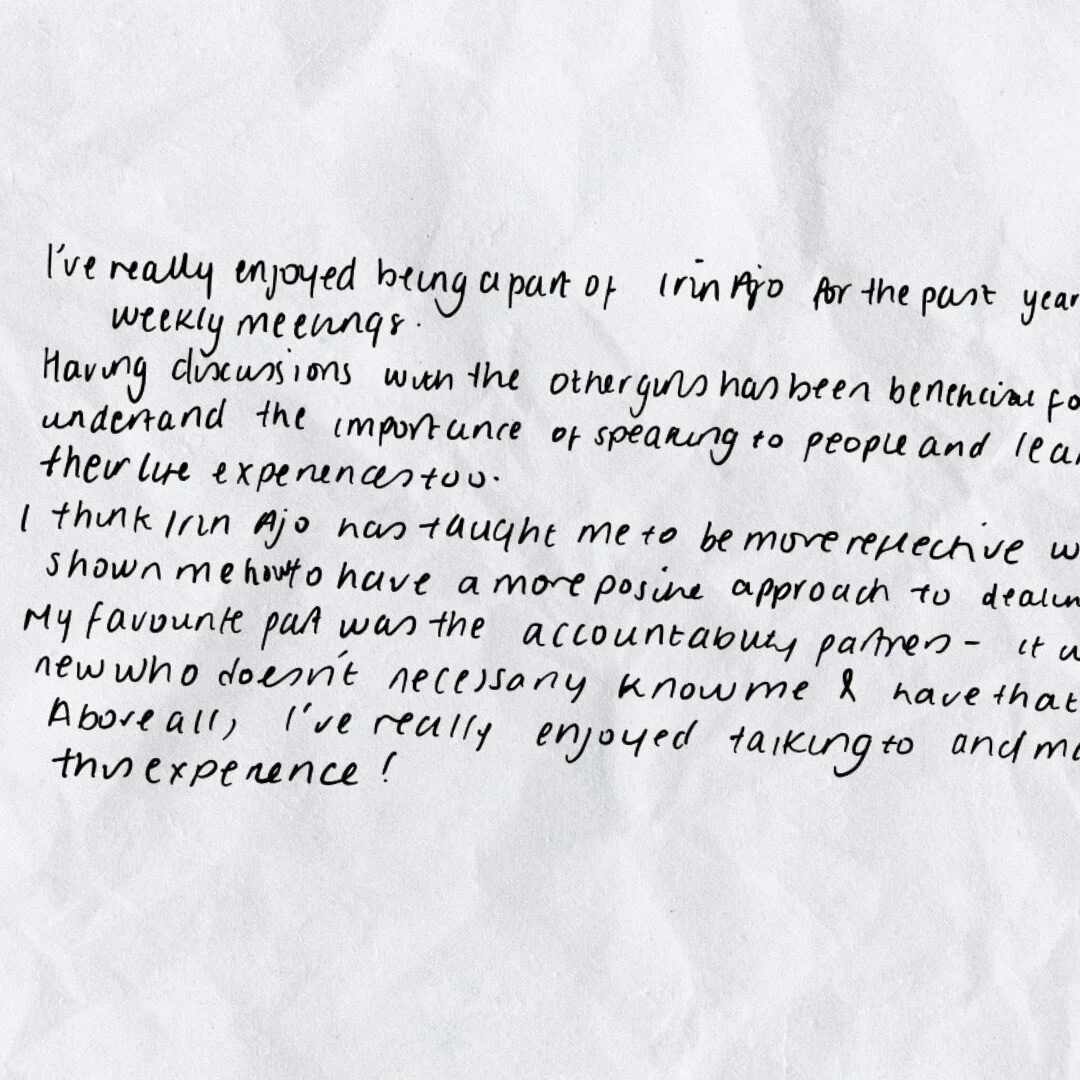 I've really enjoyed being a part of Irin Ajo for the past year
weekly meetings.
Having discussions with the other girls has been beneficial fo
understand the importance of speaking to people and lea
their life experiences too.
I think Irin Ajo has taught me to be more reflective w
shown me how to have a more positive approach to dealin
My favourite part was the accountability partners - it w
new who doesn't necessarily know me & have that
Above all, I've really enjoyed talking to and m
this experience!